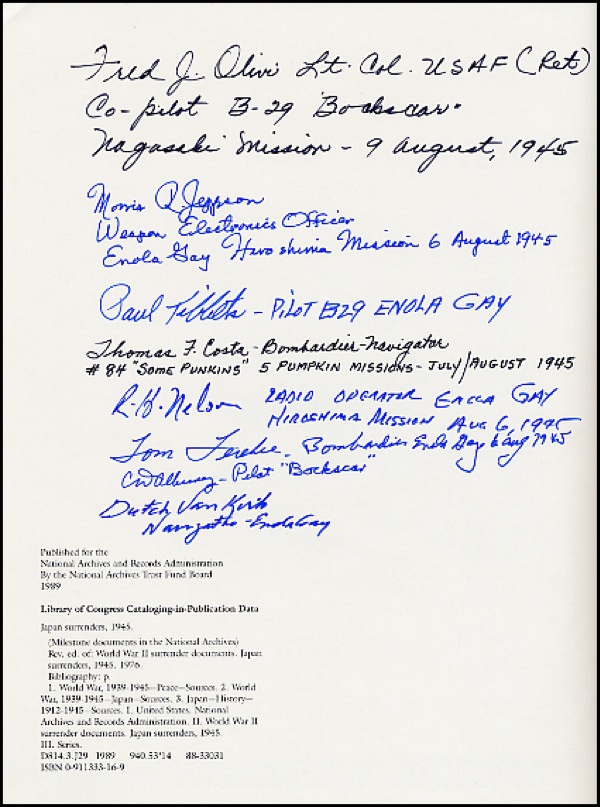 Fred J. Olivi Lt. Col. USAF (Ret)
Co-pilot B-29 "Bockscar"
Nagasaki Mission - 9 August, 1945
Morris R. Jeppson
Weapon Electronics Officer
Enola Gay Hiroshima Mission 6 August 1945
Paul Tibbets - PILOT B29 ENOLA GAY
Thomas F. Costa - Bombardier-Navigator
# 84 "SOME PUNKINS" 5 PUMPKIN MISSIONS - JULY/AUGUST 1945
R.H. Nelson RADIO OPERATOR ENOLA GAY
HIROSHIMA MISSION AUG 6, 1945
Tom Ferebee - Bombardier Enola Gay 6 Aug 1945
CD Albury - Pilot "Bockscar"
Dutch Van Kirk
Navigator - Enola Gay
Published for the
National Archives and Records Administration
By the National Archives Trust Fund Board
1989
Library of Congress Cataloging-in-Publication Data
Japan surrenders, 1945.
(Milestone documents in the National Archives)
Rev. ed. of: World War II surrender documents. Japan
surrenders, 1945. 1976.
Bibliography: p.
1. World War, 1939-1945—Peace—Sources. 2. World
War, 1939-1945—Japan—Sources. 3. Japan—History—
1912-1945—Sources. I. United States. National
Archives and Records Administration. II. World War II
surrender documents. Japan surrenders, 1945.
III. Series.
D814.3.J29 1989 940.53'14 88-33031
ISBN 0-911333-16-9